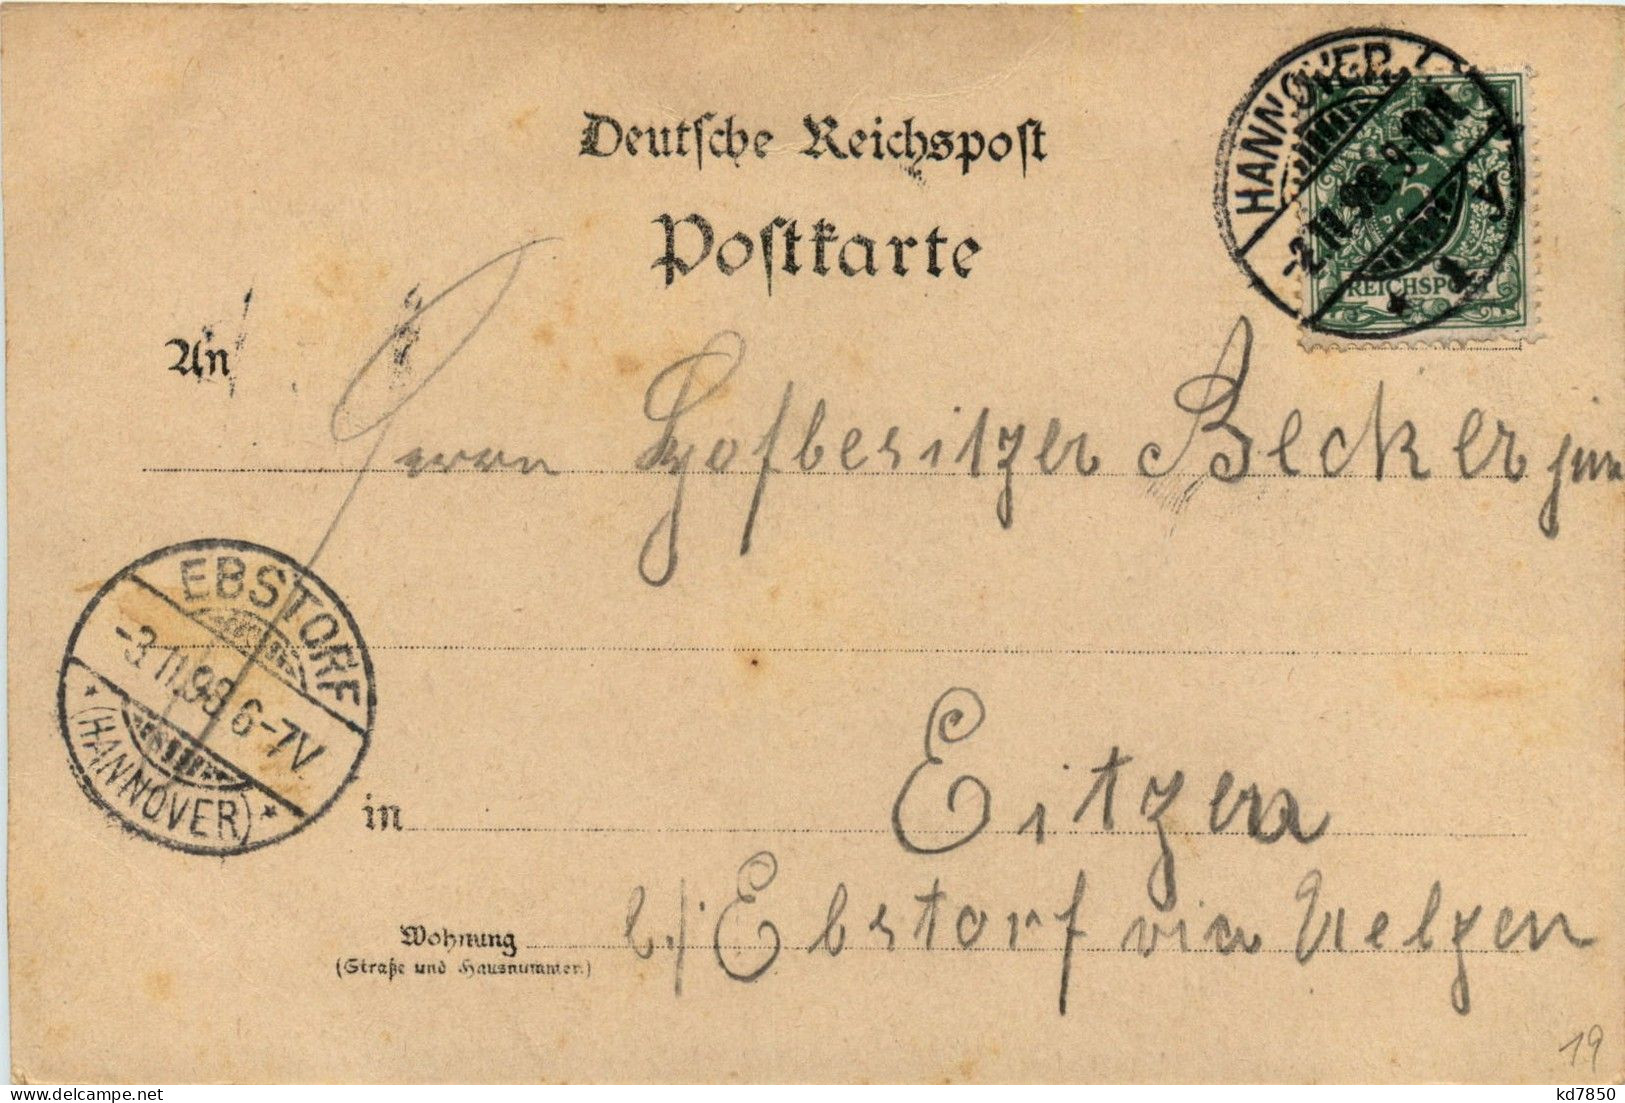 Deutsche Reichspost
Postkarte
HANNOVER 1
-2.11.98.9-10N.
* 1 y
5
REICHSPOST
An
Herrn Hofbesitzer Becker jun
EBSTORF
-3.11.98 6-7V.
* (HANNOVER) *
in Eitzen
Wohnung b./ Ebstorf via Uelzen
(Straße und Hausnummer.)
19
kd7850